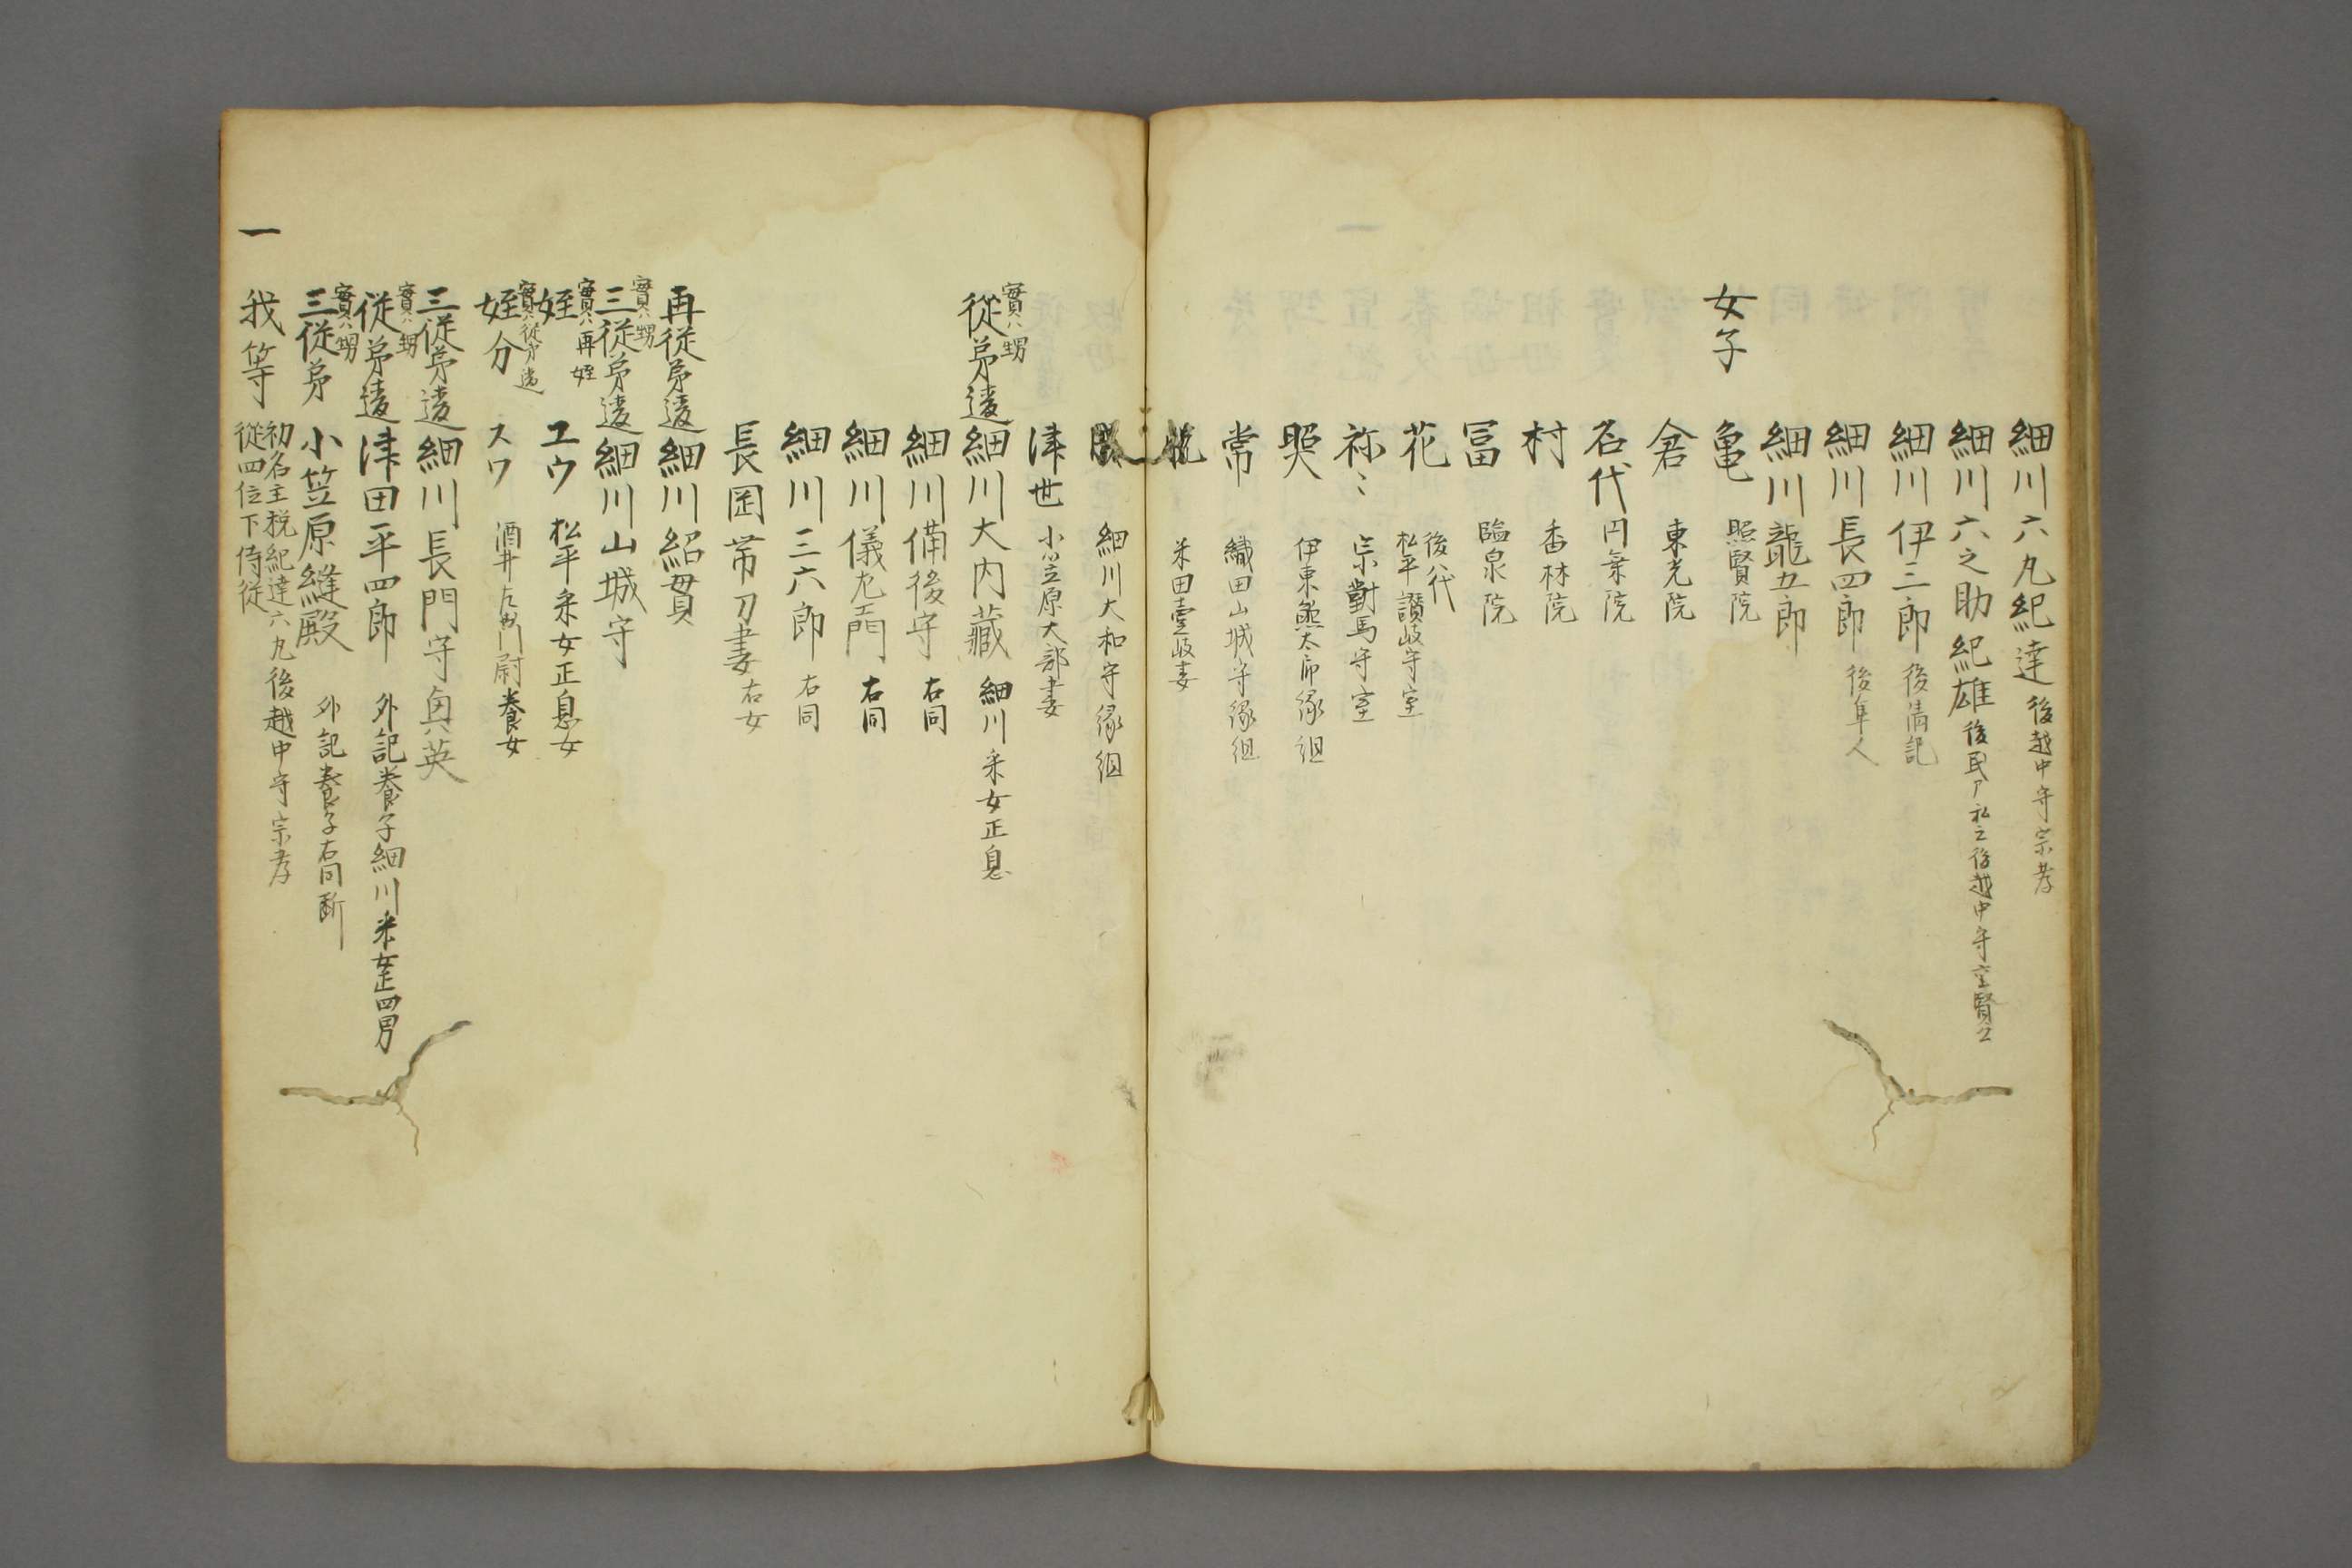 細川六丸紀達 後越中守宗孝
細川六之助紀雄 後民ア 私云後越中守重賢公
細川伊三郎 後清記
細川長四郎 後隼人
細川龍五郎
女子 亀 照賢院
倉 東光院
名代 円乗院
村 香林院
冨 臨泉院
花 後八代 松平讃岐守室
祢ミ 宗對馬守室
煛 伊東熊太郎縁組
常 織田山城守縁組
悦 米田壹岐妻
勝 細川大和守縁組
津世 小笠原大部妻
實ハ甥
従弟違 細川大内藏 細川采女正息
細川備後守 右同
細川儀左門 右同
細川三六郎 右同
長岡帯刀妻 右女
再従弟違 細川紹貫
實ハ甥
三従弟違 細川山城守
實ハ再姪
姪 ユウ 松平采女正息女
實ハ従弟違
姪分 スワ 酒井左衛門尉養女
三従弟違 細川長門守興英
實ハ甥
従弟違 津田平四郎 外記養子細川采女正四男
實ハ甥
三従弟 小笠原縫殿 外記養子右同断
一 我等 初名主税紀達六丸後越中守宗孝
従四位下侍従